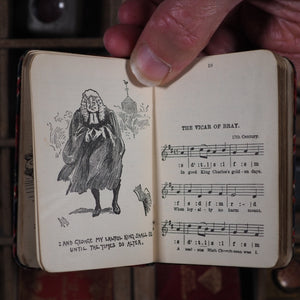 I AND GEORGE MY LAWFUL KING SHALL BE
UNTIL THE TIMES DO ALTER.
THE VICAR OF BRAY.
17th Century.
In good King Charles's gold-en days,
When loy-al-ty no harm meant,
A zeal-ous High Church-man was I